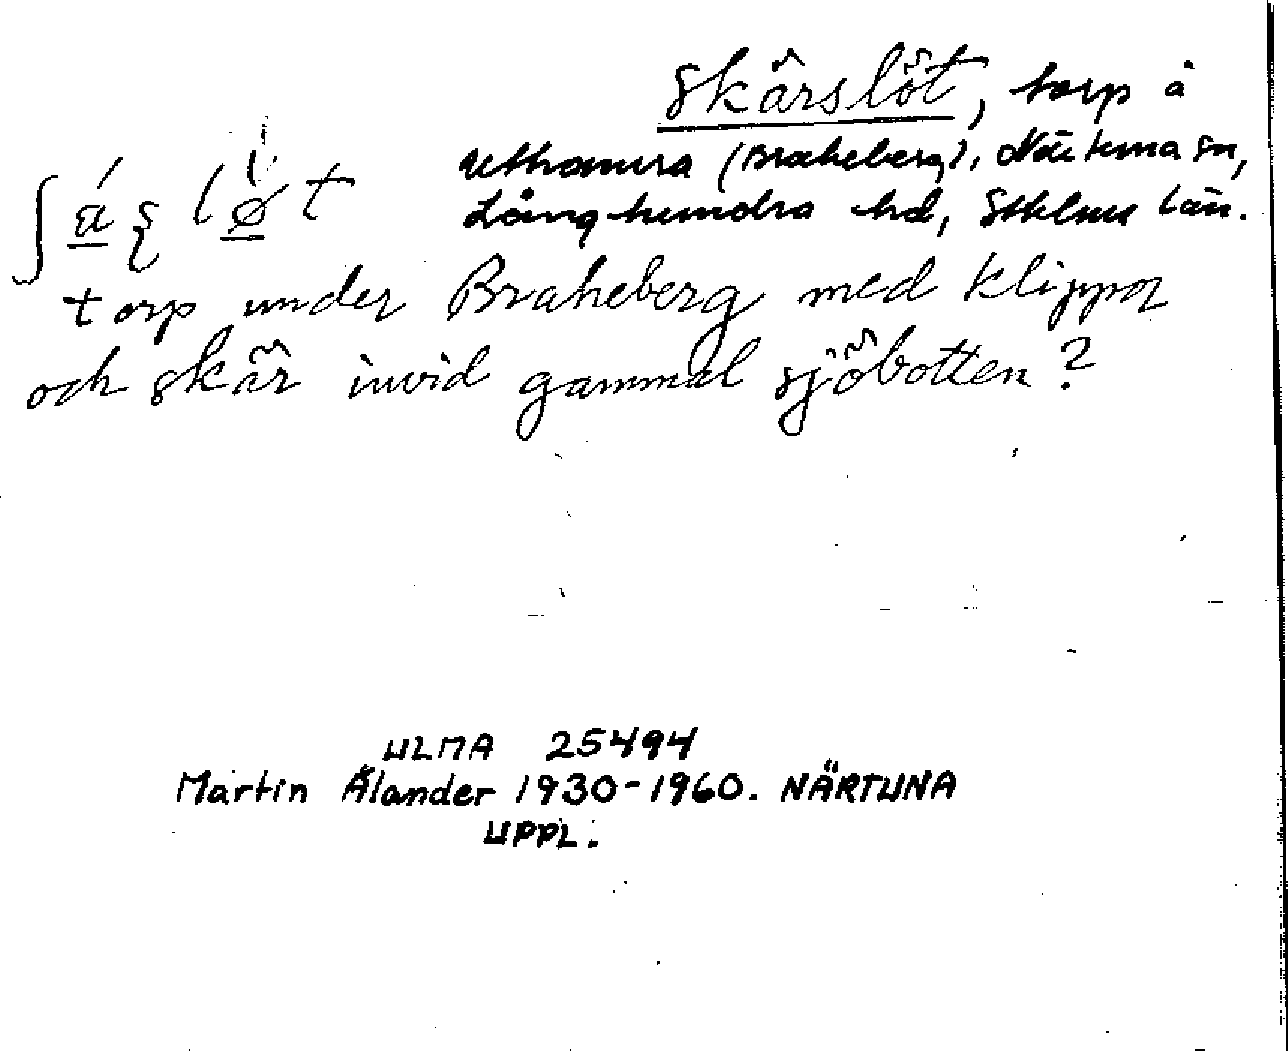 Skärslöt, torp å
Uthamra (Braheberg), Närtuna sn,
Långhundra hd, Sthlms län.
torp under Braheberg med klippor
och skär invid gammal sjöbotten?
ULMA 25494
Martin Ålander 1930-1960. NÄRTUNA
UPPL.